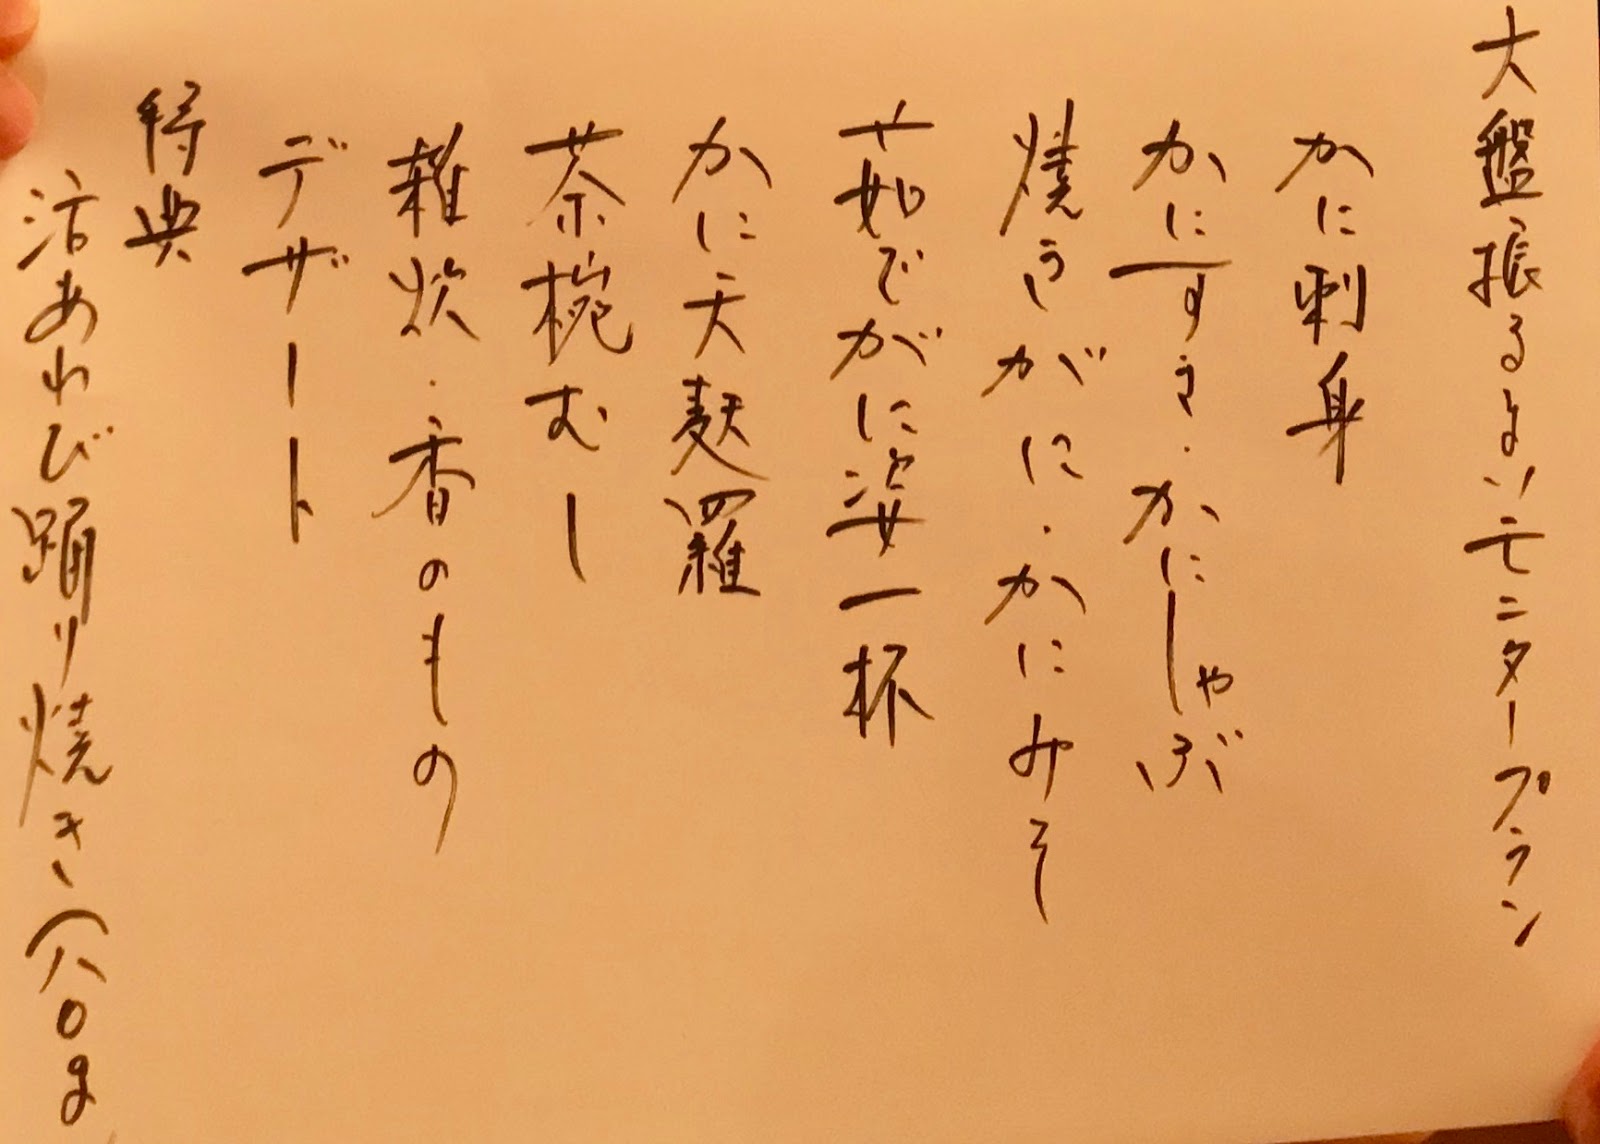 大盤振るまいモニタープラン
かに刺身
かにすき・かにしゃぶ
焼きがに・かにみそ
茹でがに姿一杯
かに天麩羅
茶椀むし
雑炊・香のもの
デザート
特典
活あわび踊り焼き（八〇g